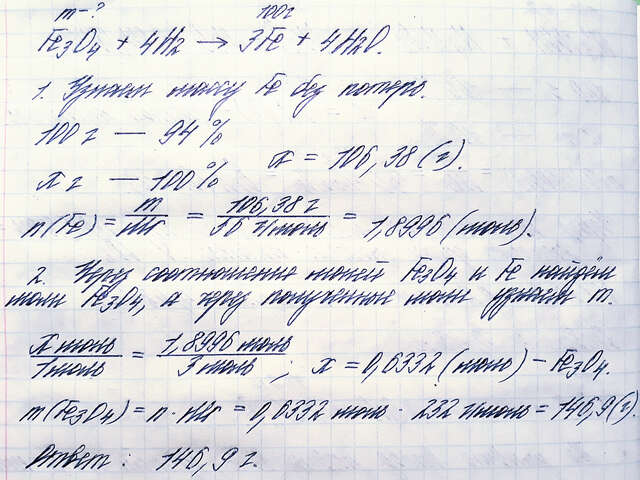 m-?
100г
Fe3O4 + 4H2 → 3Fe + 4H2O.
1. Узнаем массу Fe без потерь.
100 г — 94 %
x г — 100 %
x = 106,38 (г).
n(Fe) = m/Mr = 106,38 г/56 г/моль = 1,8996 (моль).
2. Через соотношение молей Fe3O4 и Fe найдём
моли Fe3O4, а через полученные моли узнаем m.
x моль/1 моль = 1,8996 моль/3 моль ; x = 0,6332 (моль) – Fe3O4.
m(Fe3O4) = n · Mr = 0,6332 моль · 232 г/моль = 146,9 (г).
Ответ : 146,9 г.